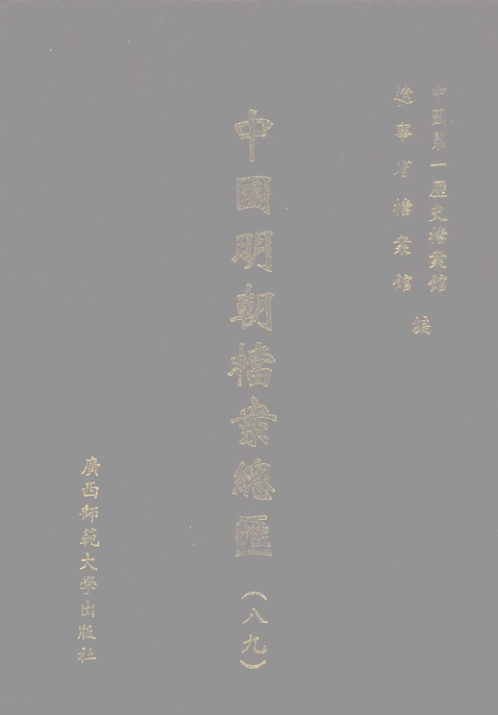 中國第一歷史檔案館
遼寧省檔案館
編
中國明朝檔案總匯
(八九)
廣西師範大学出版社